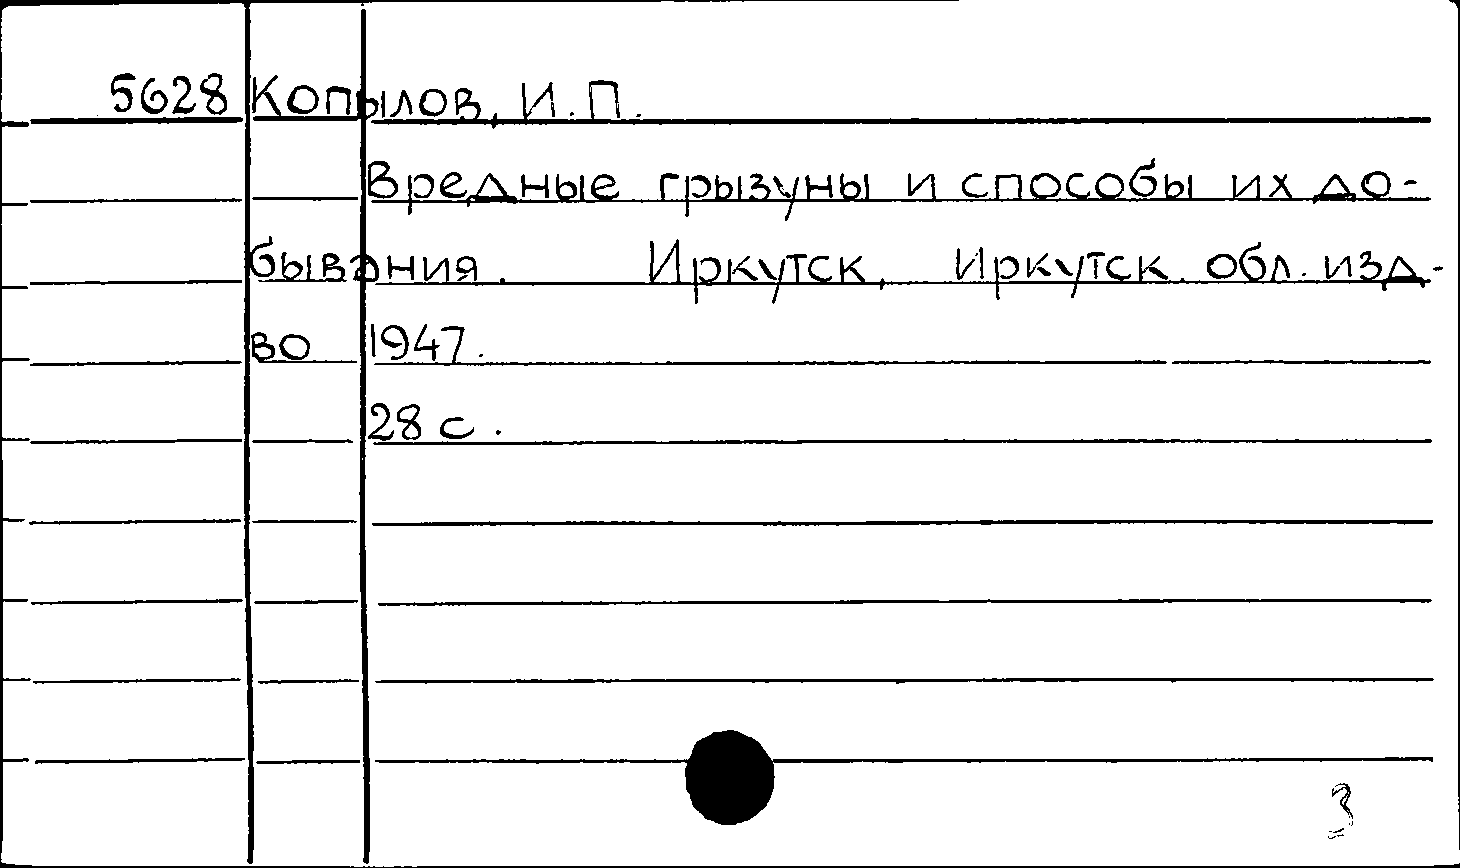 5628 Копылов, И. П.
Вредные грызуны и способы их до-
бывания. Иркутск, Иркутск. обл. изд-
во 1947.
28 с.
3